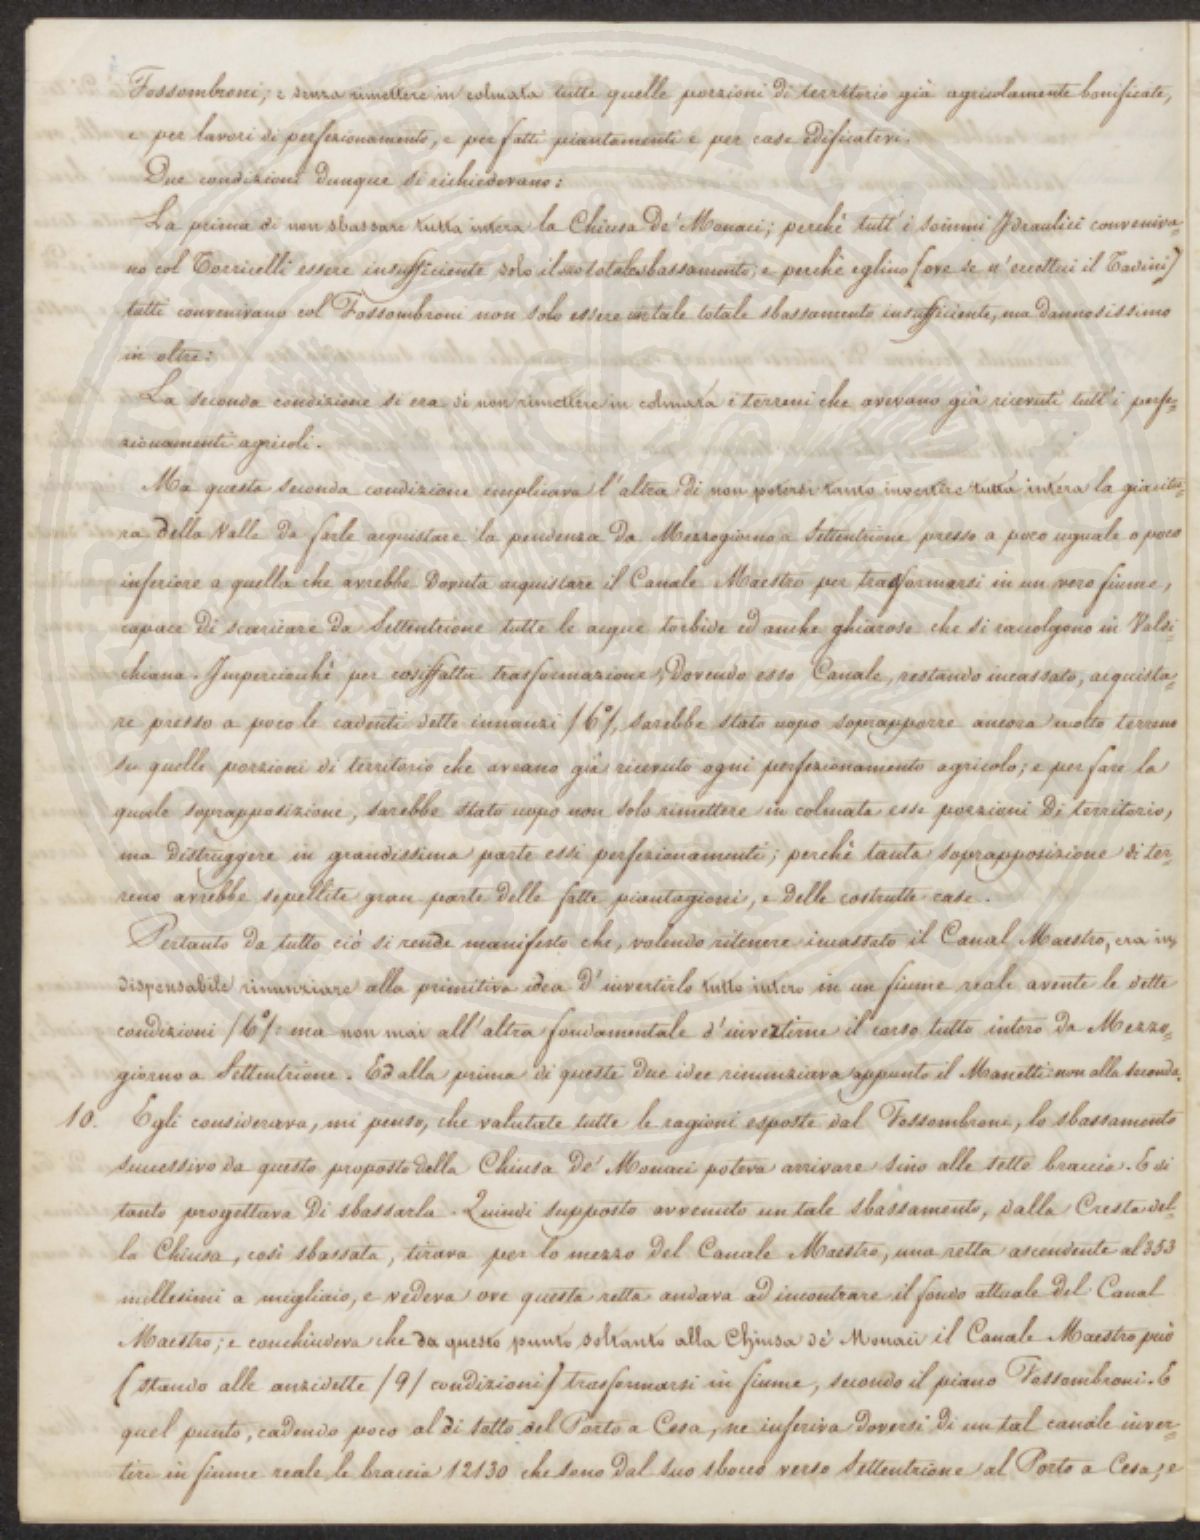 Fossombroni; e senza rimettere in colmata tutte quelle porzioni di territorio già agricolamente bonificate,
e per lavori di perfezionamento, e per fatti piantamenti e per case edificatevi.
Due condizioni dunque si richiedevano:
La prima di non sbassare tutta intera la Chiusa de' Monaci; perchè tutt' i sommi Idraulici conveniva-
no col Torricelli essere insufficiente solo il suo totale sbassamento, e perchè eglino (ove se n' eccettui il Tadini)
tutti convenivano col Fossombroni non solo essere un tale totale sbassamento insufficiente, ma dannosissimo
in oltre:
La seconda condizione si era di non rimettere in colmata i terreni che avevano già ricevuti tutt' i perfe-
zionamenti agricoli.
Ma questa seconda condizione implicava l' altra di non potersi tanto invertire tutta intera la giacitu-
ra della Valle da farle acquistare la pendenza da Mezzogiorno a Settentrione presso a poco uguale o poco
inferiore a quella che avrebbe dovuta acquistare il Canale Maestro per trasformarsi in un vero fiume,
capace di scaricare da Settentrione tutte le acque torbide ed anche ghiarose che si raccolgono in Valdi-
chiana. Imperciocchè per cosiffatta trasformazione, dovendo esso Canale, restando incassato, acquista-
re presso a poco le cadenti dette innanzi /6°/, sarebbe stato uopo soprapporre ancora molto terreno
su quelle porzioni di territorio che aveano già ricevuto ogni perfezionamento agricolo; e per fare la
quale soprapposizione, sarebbe stato uopo non solo rimettere in colmata esse porzioni di territorio,
ma distruggere in grandissima parte essi perfezionamenti; perchè tanta soprapposizione di ter-
reno avrebbe sepellite gran parte delle fatte piantagioni, e delle costrutte case.
Pertanto da tutto ciò si rende manifesto che, volendo ritenere incassato il Canal Maestro, era in-
dispensabile rinunziare alla primitiva idea d' invertirlo tutto intero in un fiume reale avente le dette
condizioni /6°/: ma non mai all' altra fondamentale d' invertirne il corso tutto intero da Mezzo-
giorno a Settentrione. Ed alla prima di queste due idee rinunziava appunto il Manetti: non alla seconda.
10. Egli considerava, mi penso, che valutate tutte le ragioni esposte dal Fossombroni, lo sbassamento
successivo da questo proposto della Chiusa de' Monaci poteva arrivare sino alle sette braccia. E di
tanto progettava di sbassarla. Quindi supposto avvenuto un tale sbassamento, dalla Cresta del-
la Chiusa, così sbassata, tirava per lo mezzo del Canale Maestro, una retta ascendente al 353
millesimi a migliaio, e vedeva ove questa retta andava ad incontrare il fondo attuale del Canal
Maestro; e conchiudeva che da questo punto soltanto alla Chiusa de' Monaci il Canale Maestro può
(stando alle anzidette /9/ condizioni) trasformarsi in fiume, secondo il piano Fossombroni. E
quel punto, cadendo poco al di sotto del Porto a Cesa, ne inferiva doversi di un tal canale inver-
tire in fiume reale le braccia 12130 che sono dal suo sbocco verso Settentrione al Porto a Cesa; e